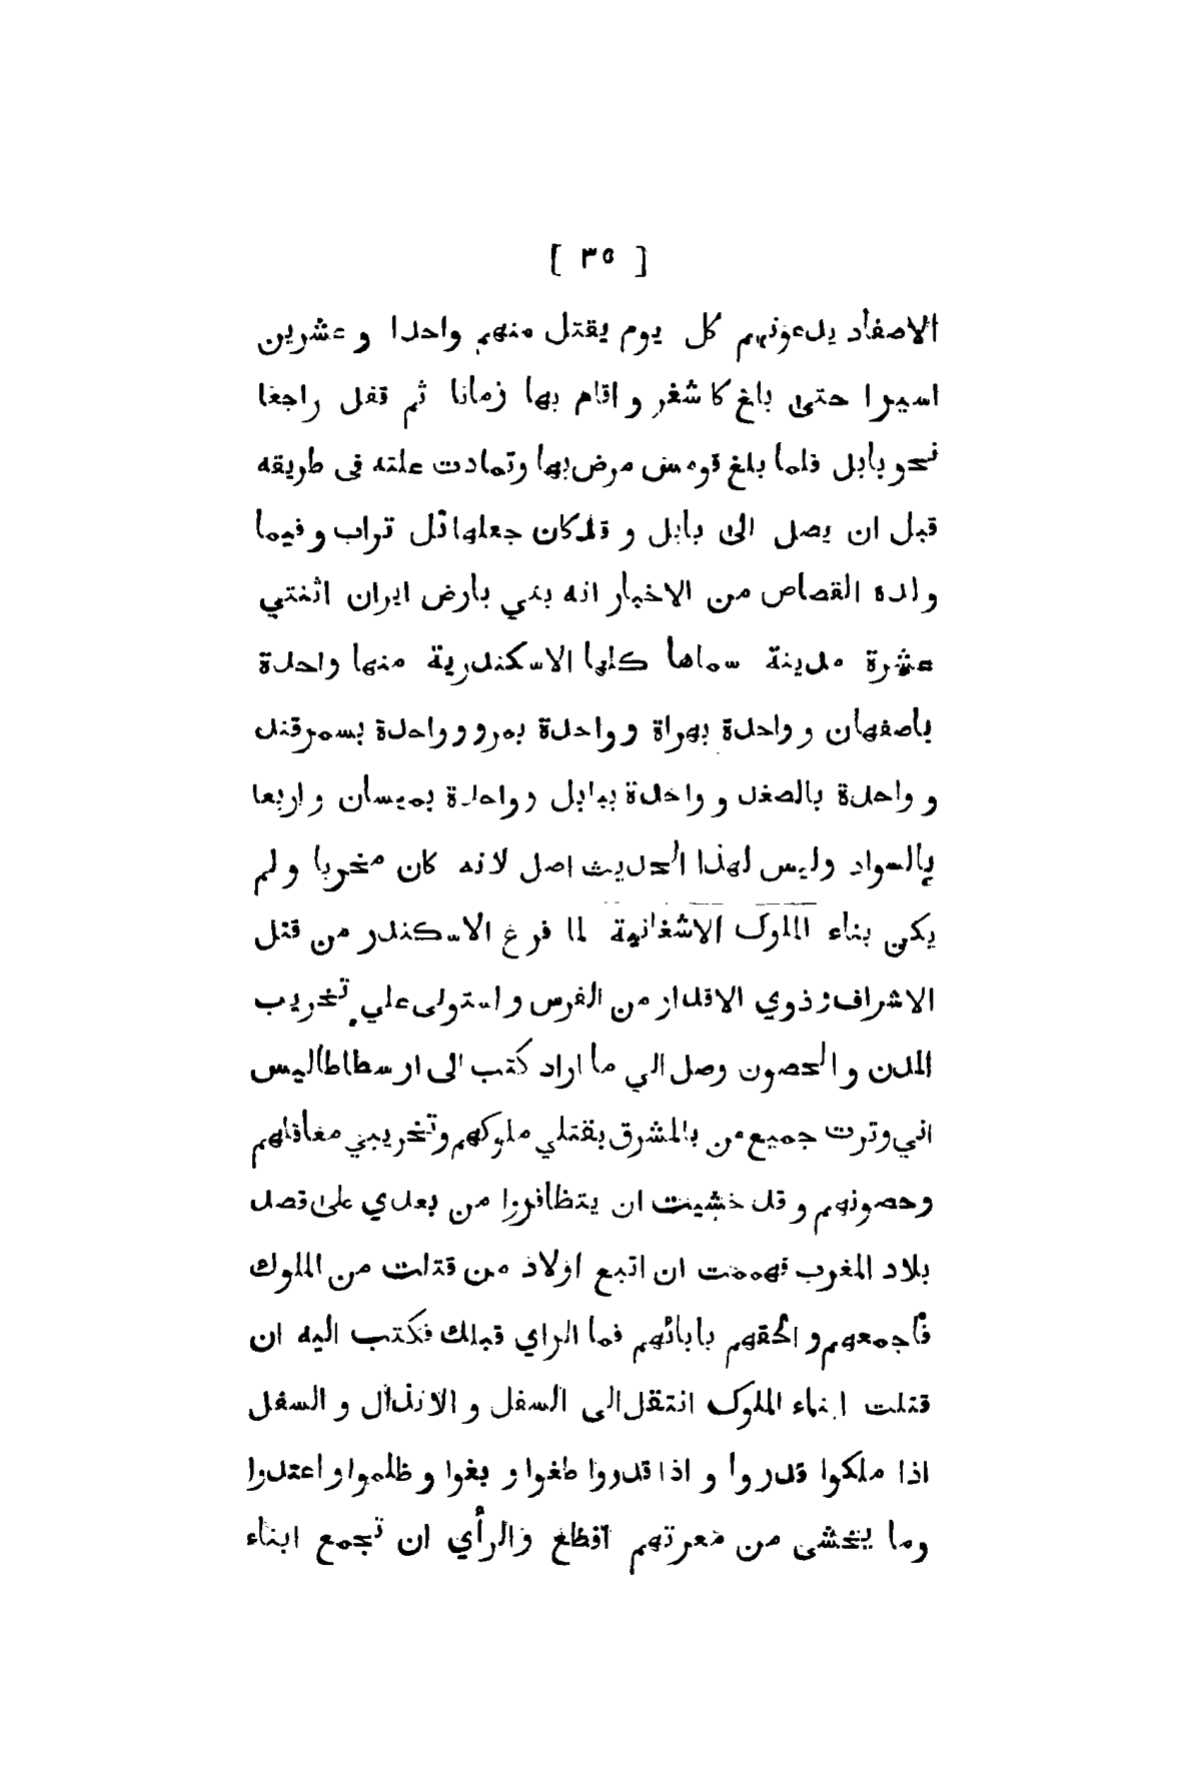 [ ٣٥ ]
الاصفاد يدعونهم كل يوم يقتل منهم واحدا و عشرين
اسيرا حتى باغ كاشغر و اقام بها زمانا ثم قفل راجعا
نحو بابل فلما بلغ قومس مرض بها وتمادت علته فى طريقه
قبل ان يصل الى بابل و قد كان جعلها تل تراب و فيما
ولده القصاص من الاخبار انه بني بارض ايران اثنتي
عشرة مدينة سماها كلها الاسكندرية منها واحدة
باصفهان و واحدة بهراة و واحدة بمرو و واحدة بسمرقند
و واحدة بالصغد و واحدة ببابل و واحدة بميسان و اربعا
بالسواد وليس لهذا الحديث اصل لانه كان مخربا و لم
يكن بناء الملوك الاشغانية لما فرغ الاسكندر من قتل
الاشراف و ذوي الاقدار من الفرس و استولى علي تخريب
المدن و الحصون وصل الي ما اراد كتب الى ارسطاطاليس
اني وترت جميع من بالمشرق بقتلي ملوكهم وتخريبي معاقلهم
وحصونهم و قد خشيت ان يتظافروا من بعدي على قصد
بلاد المغرب فهممت ان اتبع اولاد من قتلت من الملوك
فأجمعهم و الحقهم بابائهم فما الراي قبلك فكتب اليه ان
قتلت ابناء الملوك انتقل الى السفل و الانذال و السفل
اذا ملكوا قدروا و اذا قدروا طغوا و بغوا و ظلموا و اعتدوا
وما يخشى من معرتهم افظع والرأي ان تجمع ابناء